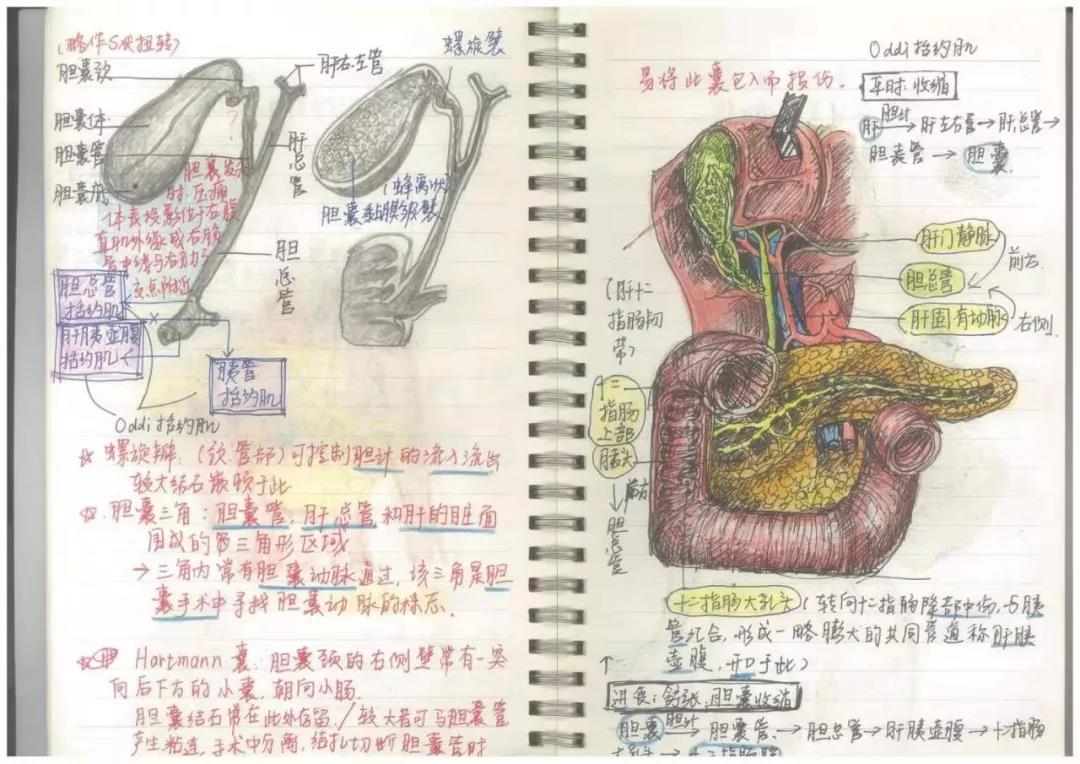 (略作S状扭转)
胆囊颈
胆囊体
胆囊管
胆囊底
肝右左管
肝总管
胆总管
螺旋襞
(蜂窝状)
胆囊黏膜皱襞
?
胆囊发炎
时,压痛
体表投影位于右腹
直肌外缘或右锁
骨中线与右肋弓
交点附近
胆总管
括约肌
肝胰壶腹
括约肌
胰管
括约肌
Oddi括约肌
☆ 螺旋瓣.(颈.管部)可控制胆汁的流入流出
较大结石嵌顿于此
☆. 胆囊三角:胆囊管,肝总管和肝的脏面
围成的三角形区域
→三角内常有胆囊动脉通过,该三角是胆
囊手术中寻找胆囊动脉的标志.
Hartmann囊:胆囊颈的右侧壁常有一突
向后下方的小囊,朝向小肠.
胆囊结石常在此处存留/较大者可与胆囊管
产生粘连,手术中分离,结扎切断胆囊管时
易将此囊包入而损伤.
Oddi括约肌
平时:收缩
肝 胆汁→肝左右管→肝总管→
胆囊管→胆囊.
肝门静脉
前方.
胆总管
肝固有动脉
右侧.
(肝十二
指肠韧
带)
十二
指肠
上部
胰头
前方
胆总管
十二指肠大乳头(转向十二指肠降部中份,与胰
管汇合,形成一略膨大的共同管道称肝胰
壶腹,开口于此)
↑
进食:舒张.胆囊收缩
胆囊 胆汁→胆囊管→胆总管→肝胰壶腹→十二指肠
大乳头→十二指肠腔